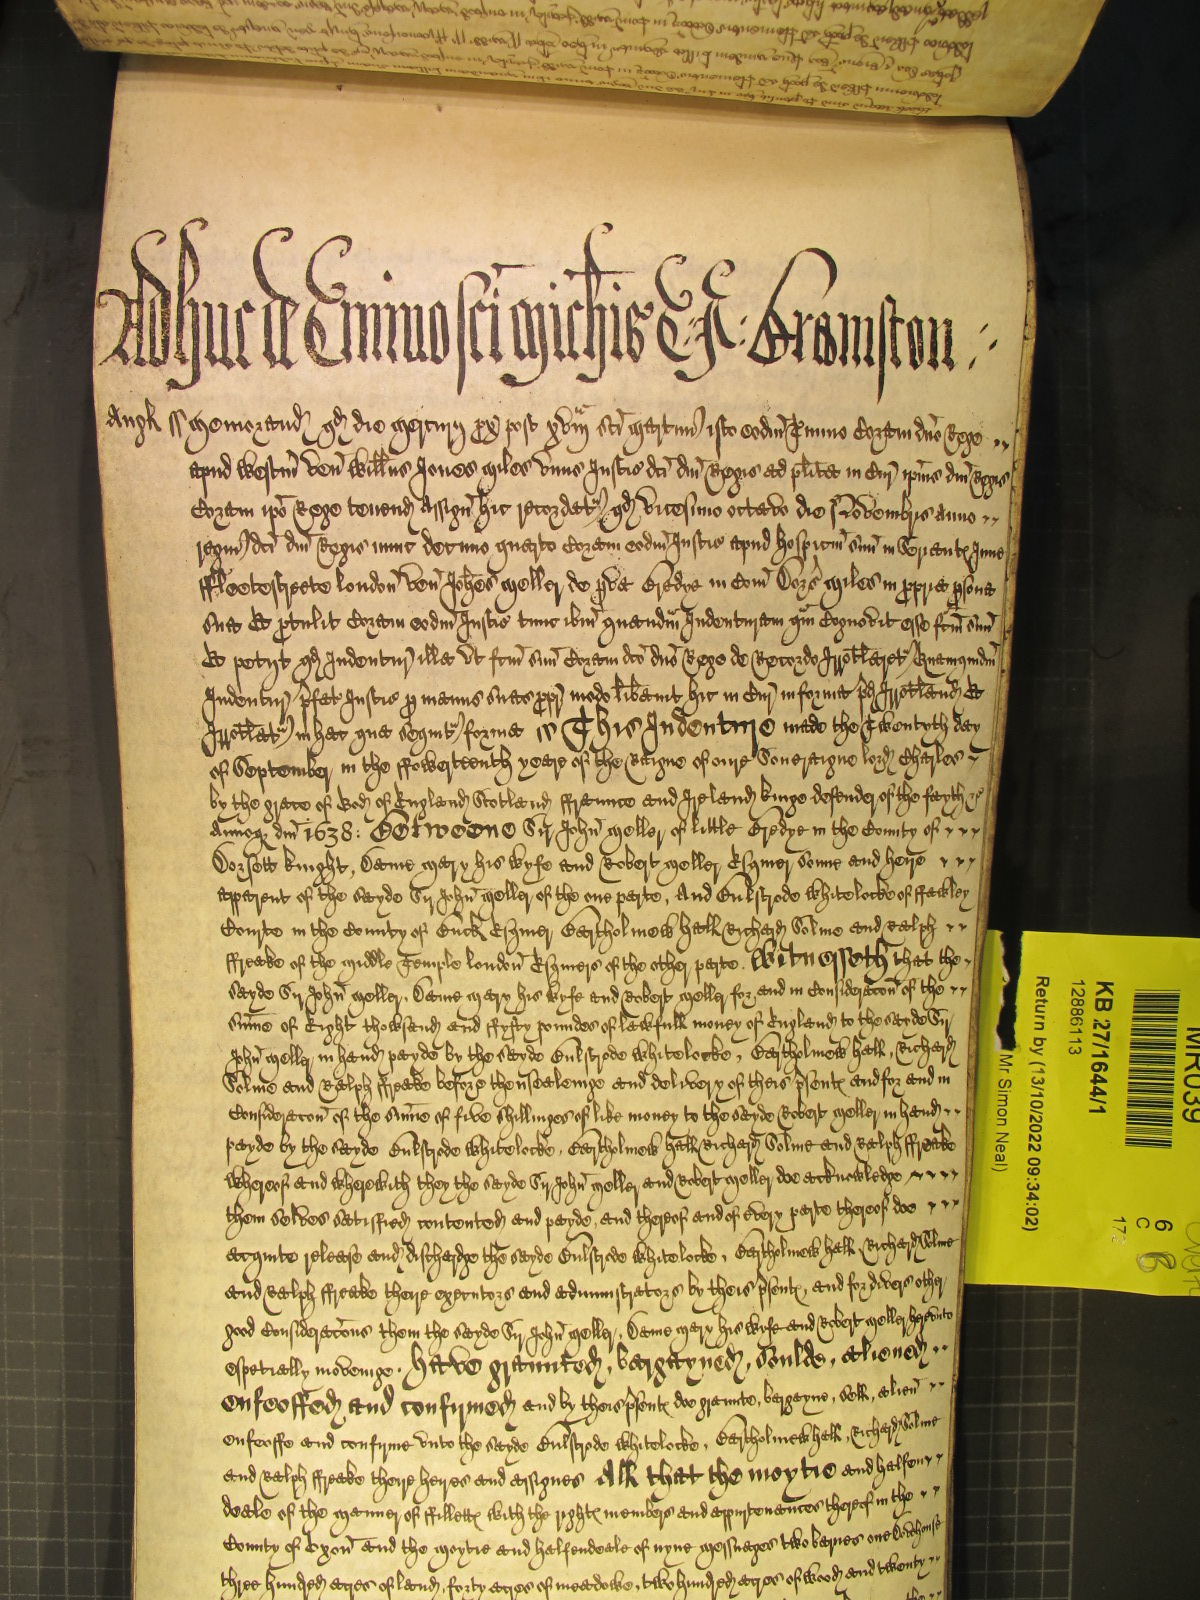 Adhuc de Termino sci Mich̃is T: R: Bramston
Angł ss Memorand qd die Mercurij px post xviij sci Martini isto eodm Termino Coram dno Rege
apud Westm̃ ven Willus Jones Miles vnus Justic dci dni Regis ad plita in Cur ipius dni Regis
Coram ipo Rege tenend Assign hic recordat qd vicesimo octavo die Novembris Anno
regni dci dni Regis nunc decimo quarto Coram eodm Justic apud hospitm suu in Serient Inne
ffleetestreete london ven Johes Meller de pva Bredye in Com Dors Miles in ppria psona
sua Et ptulit Coram eodm Justic tunc ibm quandm Indenturam qm Cognovit esse fcm suu
Et petijt qd Indentur illa vt fcm suu Coram dco dno Rege de Recordo Irrotlaret Quamquidm
Indentur pfat Justic p manus suas ppr modo libavit hic in Cur in forma pd Irrotland Et
Irrotlat in hac que sequit forma ss This Indenture made the Twentyth day
of September in the ffowerteenth yeare of the Raigne of our Soueraigne lord Charles
by the grace of God of England Scotland ffraunce and Ireland kinge defender of the fayth &c
Annoq dni 1638: Betweene Sir John Meller of little Bredye in the County of
Dorsett knight, Dame Mary his wyfe and Robert Meller Esquier sonne and heire
apparent of the sayde Sir John Meller of the one parte, And Bulstrode Whitelocke of ffawley
Courte in the County of Buck Esquier Bartholmew Hall Richard Solme and Ralph
ffreake of the Middle Temple london Esquiers of the other parte. Witnesseth that the
sayde Sir John Meller, Dame Mary his wyfe and Robert Meller for and in Consideracon of the
sume of Eight thowsand and ffyfty poundes of lawfull money of England to the sayde Sir
John Meller in hand payde by the sayde Bulstrode Whitelocke, Bartholmew Hall, Richard
Solme and Ralph ffreake before thensealeinge and delivery of theis psents and for and in
Consideracon of the sume of five shillinges of like money to the sayde Robert Meller in hand
payde by the sayde Bulstrode Whitelocke, Bartholmew Hall Richard Solme and Ralph ffreake
whereof and wherewith they the sayde Sir John Meller and Robert Meller doe acknowledge
them selves satisfied contented and payde, and thereof and of every parte thereof doe
acquite release and discharge the sayde Bulstrode Whitelocke, Bartholmew Hall Richard Solme
and Ralph ffreake theire executors and administrators by theis psents, and for divers other
good Consideracons them the sayde Sir John Meller, Dame Mary his wyfe and Robert Meller hereunto
espetially moveinge. Have graunted, bargayned, soulde, aliened
enfeoffed and confirmed and by theis psents doe graunte, bargayne, sell, alien
enfeoffe and confirme vnto the sayde Bulstrode Whitelocke, Bartholmew Hall, Richard Solme
and Ralph ffreake theire heires and assignes All that the moytie and halfen
deale of the Mannor of ffilletts with the rights members and appurtenances thereof in the
County of Oxon and the moytie and halfendeale of nyne messuages two barnes one Dovehouse
three hundred acres of land, forty acres of meadowe, two hundred acres of wood and twenty
MR039
KB 27/1644/1
12886113
Return by (13/10/2022 09:34:02)
Mr Simon Neal)
6
C
17